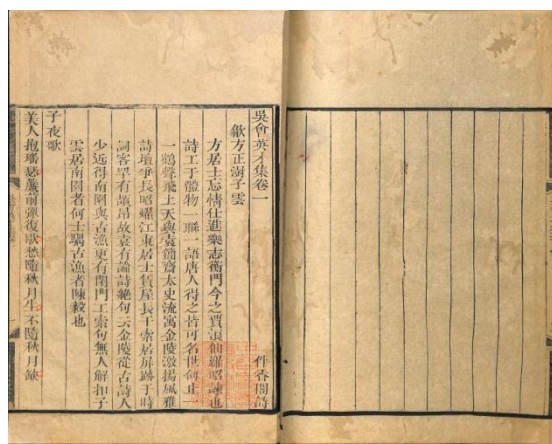 吳會英才集卷一
歙方正澍子雲 伴香閣詩
方居士忘情仕進樂志衡門今之賈浪仙羅昭諫也
詩工于體物一聯一語唐人得之皆可名世何止一
一鶴聲飛上天與袁簡齋太史流寓金陵激揚風雅
詩壇爭長昭耀江東居士賃屋長干索居屏跡于時
詞客罕有頡頏故袁有論詩絕句云金陵從古詩人
少近得南園與古漁更有閉門工索句無人解扣子
雲居南園者何士顒古漁者陳毅也
子夜歌
美人抱瑤瑟歲前彈復歇愁隨秋月生不隨秋月缺